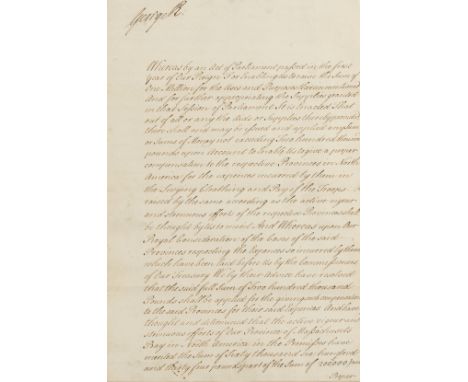 George R.
Whereas by an Act of Parliament passed in the first
Year of Our Reign For Enabling Us to raise the Sum of
One Million for the Uses and Purposes therein mentioned
And for further appropriating the Supplies granted
in that Session of Parliament It is Enacted That
out of all or any the Aids or Supplies thereby provided
there shall and may be issued and applied any Sum
or Sums of Money not exceeding Two hundred thousand
pounds upon Account to Enable Us to give a proper
compensation to the respective Provinces in North
America for the expences incurred by them in
the Levying Cloathing and Pay of the Troops
raised by the same according as the active vigour
and strenuous efforts of the respective Provinces shall
be thought by Us to merit And Whereas upon Our
Royal Consideration of the Cases of the said
Provinces respecting the Expences so incurred by them
which have been laid before Us by the Commissioners
of Our Treasury We by their Advice have resolved
that the said full Sum of Two hundred thousand
Pounds shall be applied for the giving such compensation
to the said Provinces for their said Expences And have
thought and determined that the active vigour and
strenuous efforts of Our Province of Massachusets
Bay in North America in the Premisses have
merited the Sum of Sixty thousand and Six hundred
and thirty four pounds part of the Sum of 200000
Proper